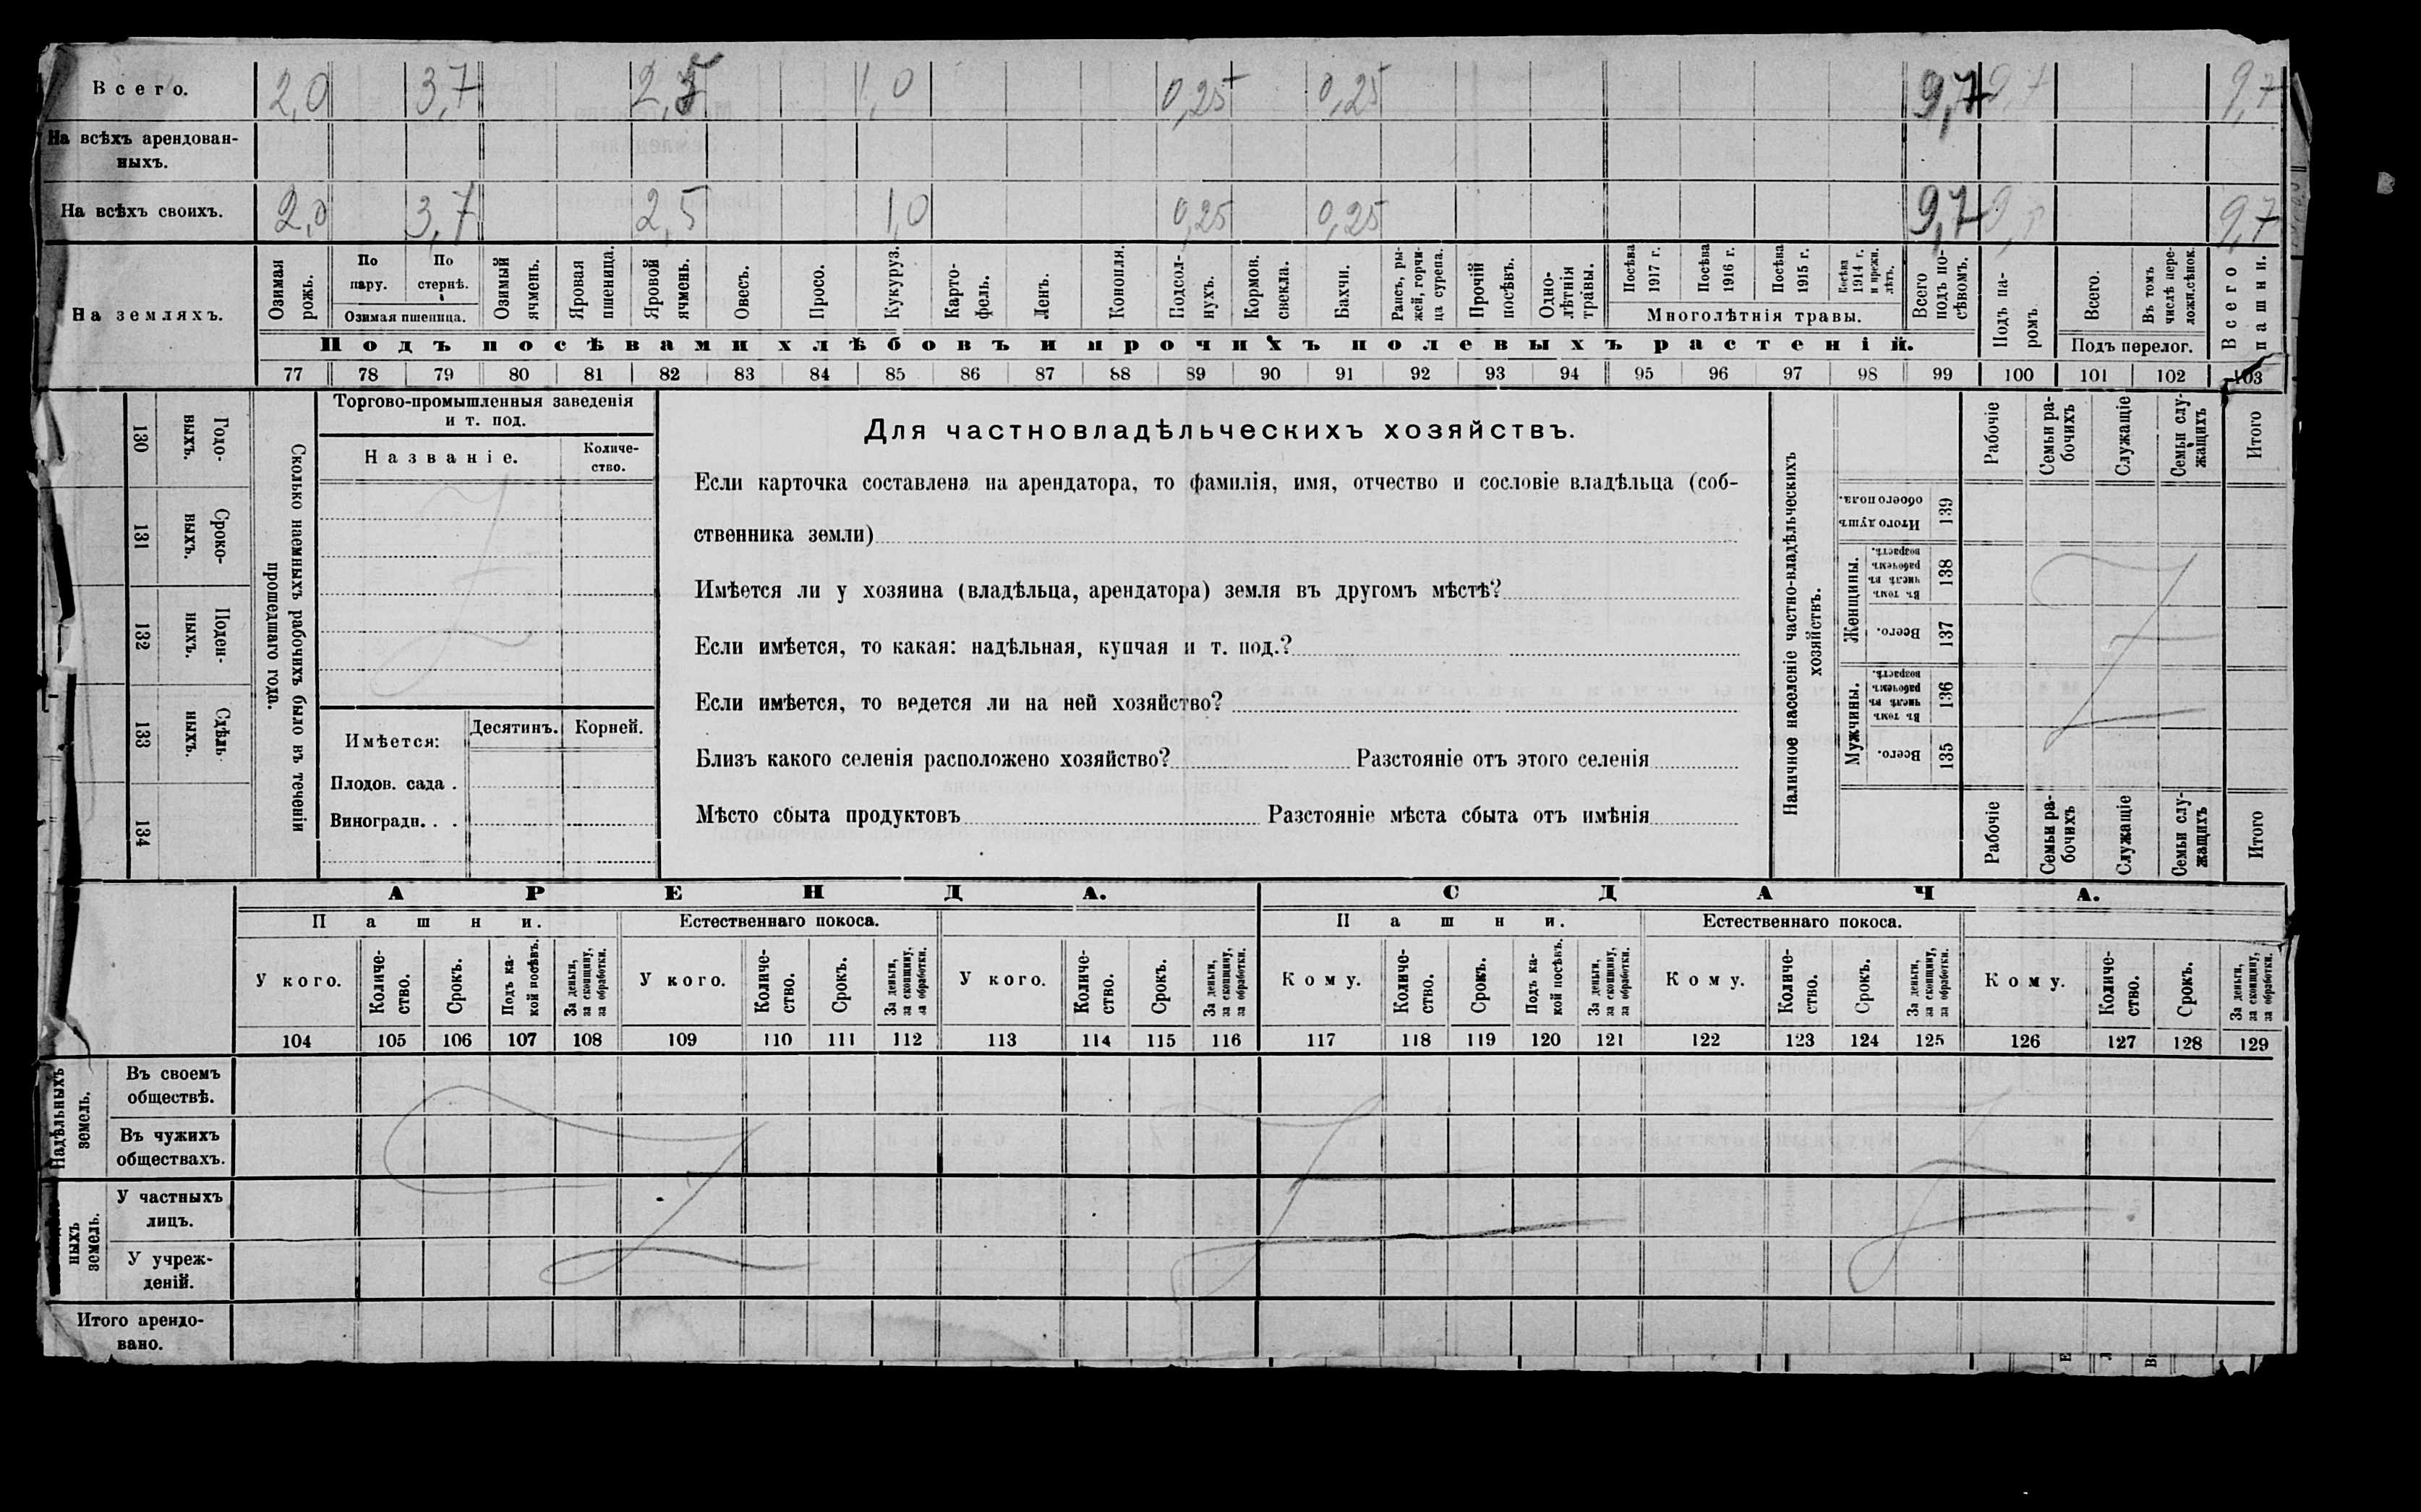 Всего. 2,0 3,7 2,5 1,0 0,25 0,25 9,7 9,7
На всѣхъ арендован-
ныхъ.
На всѣхъ своихъ. 2,0 3,7 2,5 1,0 0,25 0,25 9,7 9,7
На земляхъ.
Озимая рожь.
По пару.
По стернѣ.
Озимая пшеница.
Озимый ячмень.
Яровая пшеница.
Яровой ячмень.
Овесъ.
Просо.
Кукуруз.
Карто-
фель.
Ленъ.
Конопля.
Подсол-
нухъ.
Кормов. свекла.
Бахчи.
Рапсъ, ры-
жей, горчи-
ца сурепа.
Прочій посѣвъ.
Одно-
лѣтнія травы.
Посѣва 1917 г.
Посѣва 1916 г.
Посѣва 1915 г.
Посѣва 1914 г. и прежн. лѣтъ.
Многолѣтнія травы.
Всего подъ по-
сѣвомъ.
Подъ па-
ромъ.
Всего.
Въ томъ числѣ пере-
ложн.сѣнок.
Подъ перелог.
Всего пашни.
Подъ посѣвами хлѣбовъ и прочихъ полевыхъ растеній.
77 78 79 80 81 82 83 84 85 86 87 88 89 90 91 92 93 94 95 96 97 98 99 100 101 102 103
Годо-
выхъ. 130
Сроко-
выхъ. 131
Поден-
ныхъ. 132
Сдѣль-
ныхъ. 133
134
Сколько наемныхъ рабочихъ было въ теченіи
прошедшаго года.
Торгово-промышленныя заведенія
и т. под.
Названіе.
Количе-
ство.
Имѣется: Десятинъ. Корней.
Плодов. сада .
Виноградн. . .
Для частновладѣльческихъ хозяйствъ.
Если карточка составлена на арендатора, то фамилія, имя, отчество и сословіе владѣльца (соб-
ственника земли)
Имѣется ли у хозяина (владѣльца, арендатора) земля въ другомъ мѣстѣ?
Если имѣется, то какая: надѣльная, купчая и т. под.?
Если имѣется, то ведется ли на ней хозяйство?
Близъ какого селенія расположено хозяйство? Разстояніе отъ этого селенія
Мѣсто сбыта продуктовъ Разстояніе мѣста сбыта отъ имѣнія
Наличное населеніе частно-владѣльческихъ
хозяйствъ.
Итого душъ обоего пола. 139
Женщины.
Въ томъ числѣ въ рабочемъ возрастѣ. 138
Всего. 137
Мужчины.
Въ томъ числѣ въ рабочемъ возрастѣ. 136
Всего. 135
Рабочіе
Семьи ра-
бочихъ
Служащіе
Семьи слу-
жащихъ
Итого
Рабочіе
Семьи ра-
бочихъ
Служащіе
Семьи слу-
жащихъ
Итого
АРЕНДА. СДАЧА.
Пашни. Естественнаго покоса. Пашни. Естественнаго покоса.
У кого.
Количе-
ство.
Срокъ.
Подъ ка-
кой посѣвъ.
За деньги, за скопщину, за обработки.
У кого.
Количе-
ство.
Срокъ.
За деньги, за скопщину, за обработки.
У кого.
Количе-
ство.
Срокъ.
За деньги, за скопщину, за обработки.
Кому.
Количе-
ство.
Срокъ.
Подъ ка-
кой посѣвъ.
За деньги, за скопщину, за обработки.
Кому.
Количе-
ство.
Срокъ.
За деньги, за скопщину, за обработки.
Кому.
Количе-
ство.
Срокъ.
За деньги, за скопщину, за обработки.
104 105 106 107 108 109 110 111 112 113 114 115 116 117 118 119 120 121 122 123 124 125 126 127 128 129
Надѣльныхъ
земель.
Въ своемъ
обществѣ.
Въ чужихъ
обществахъ.
ныхъ
земель.
У частныхъ
лицъ.
У учреж-
деній.
Итого арендо-
вано.